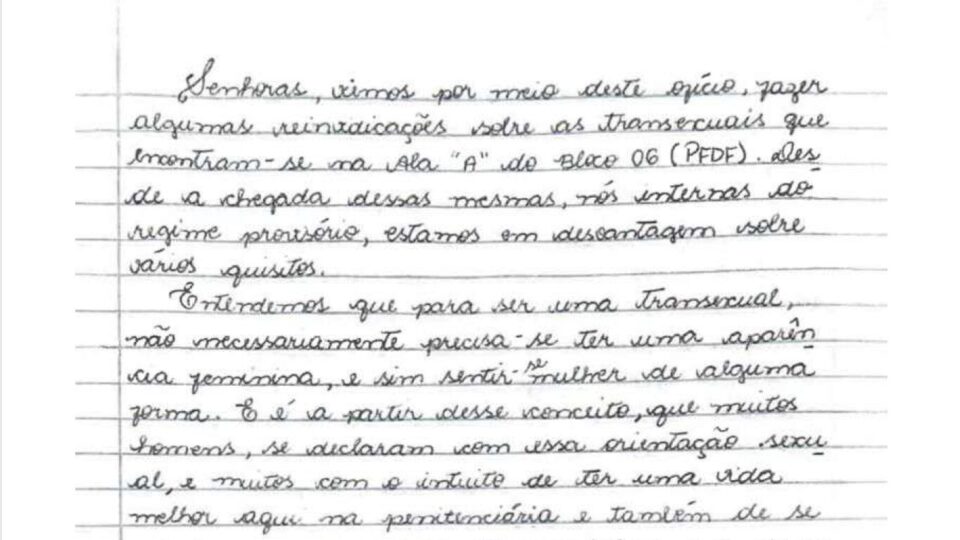 Senhoras, vimos por meio deste ofício, fazer
algumas reinvidicações sobre as transexuais que
encontram-se na Ala "A" do Bloco 06 (PFDF). Des
de a chegada dessas mesmas, nós internas do
regime provisório, estamos em desvantagem sobre
vários quisitos.
Entendemos que para ser uma transexual,
não necessariamente precisa-se ter uma aparên
cia feminina, e sim sentir-se mulher de alguma
forma. E é a partir desse conceito, que muitos
homens, se declaram com essa orientação sexu
al, e muitos com o intuito de ter uma vida
melhor aqui na penitenciária e também de se